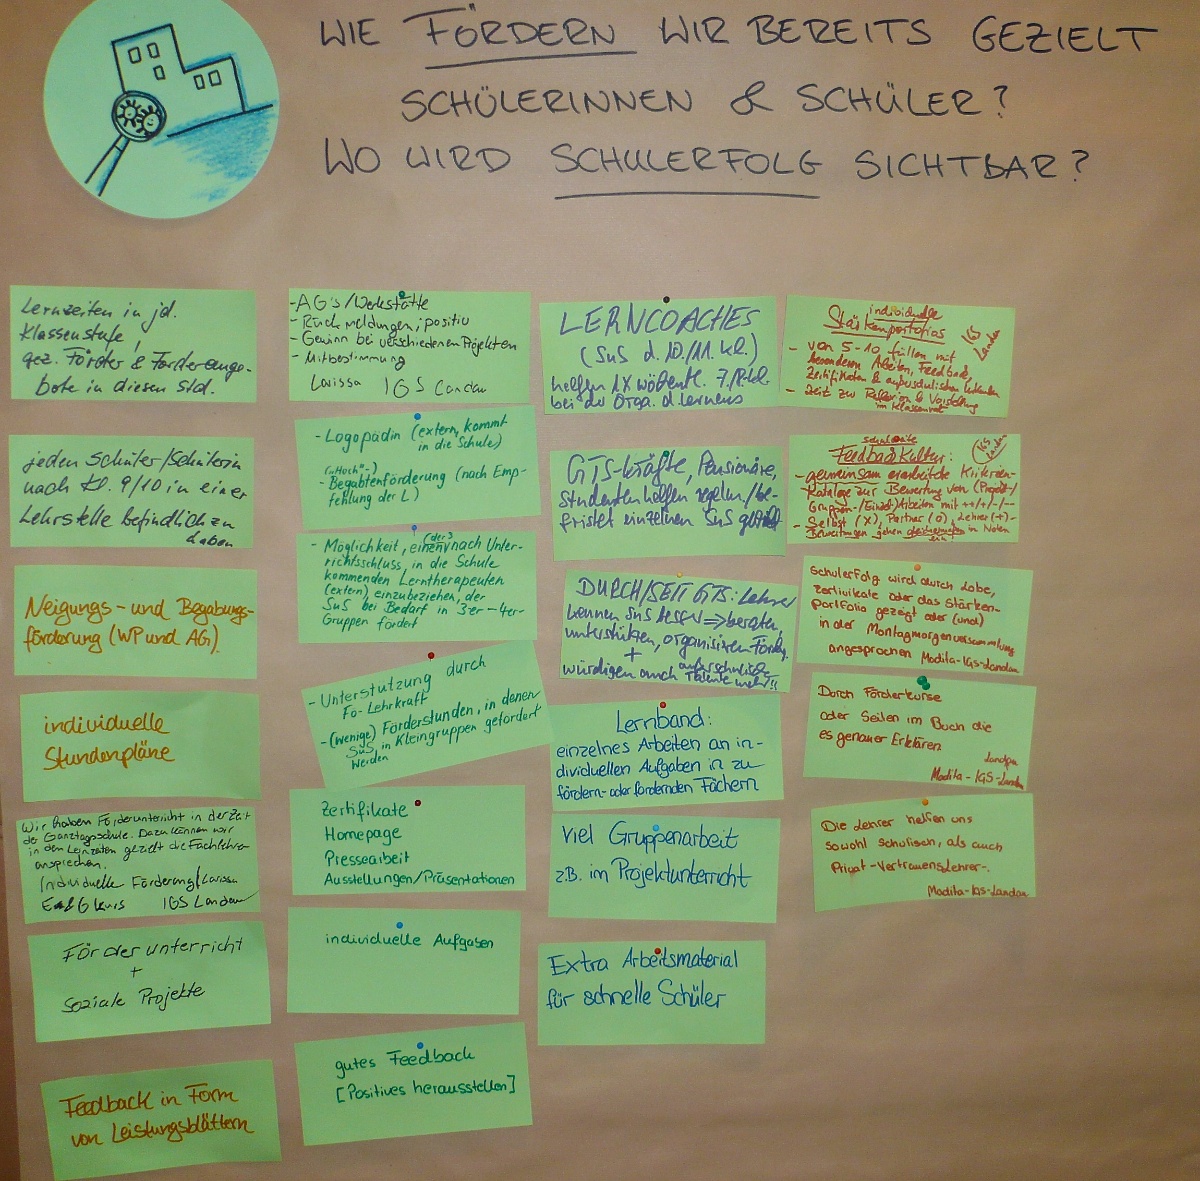 WIE FÖRDERN WIR BEREITS GEZIELT
SCHÜLERINNEN & SCHÜLER?
WO WIRD SCHULERFOLG SICHTBAR?
Lernzeiten in jd.
Klassenstufe,
gez. Förder & Forderange-
bote in diesen Std.
jeden Schüler/Schülerin
nach Kl. 9/10 in einer
Lehrstelle befindlich zu
haben
Neigungs- und Begabungs-
förderung (WP und AG)
individuelle
Stundenpläne
Wir haben Förderunterricht in der Zeit
der Ganztagsschule. Dazu können wir
in den Lernzeiten gezielt die Fachlehrer
ansprechen.
Individuelle Förderung/Larissa
E und G Kurs IGS Landau
Förderunterricht
+
soziale Projekte
Feedback in Form
von Leistungsblättern
- AG's/Werkstätte
- Rückmeldungen, positiv
- Gewinn bei verschiedenen Projekten
- Mitbestimmung
Larissa IGS Landau
- Logopädin (extern, kommt
in die Schule)
("Hoch"-)
- Begabtenförderung (nach Emp-
fehlung der L)
- Möglichkeit, einen (der 3) nach Unter-
richtsschluss, in die Schule
kommenden Lerntherapeuten
(extern) einzubeziehen, der
SuS bei Bedarf in 3er-4er-
Gruppen fördert
- Unterstützung durch
Fö-Lehrkraft
- (wenige) Förderstunden, in denen
SuS in Kleingruppen gefördert
werden
Zertifikate
Homepage
Pressearbeit
Ausstellungen/Präsentationen
individuelle Aufgaben
gutes Feedback
[Positives herausstellen]
LERNCOACHES
(SuS d. 10./11. Kl.)
helfen 1x wöchentl. 7./8. Kl.
bei der Orga. d. Lernens
GTS-Kräfte, Pensionäre,
Studenten helfen regelm./be-
fristet einzelnen SuS gezielt
DURCH/SEIT GTS: Lehrer
kennen SuS besser => beraten,
unterstützen, organisieren Förder.
+
würdigen auch außerschulische
Talente mehr!!
Lernband:
einzelnes Arbeiten an in-
dividuellen Aufgaben in zu
fördern- oder fordernden Fächern
Viel Gruppenarbeit
z.B. im Projektunterricht
Extra Arbeitsmaterial
für schnelle Schüler
individuelle
Stärkenportfolios
IGS Landau
- von 5-10 füllen mit
besonderen Arbeiten, Feedback,
Zertifikaten & außerschulischen
- Zeit zu Reflexion & Vorstellung
im Klassenrat
Feedbackkultur:
IGS Landau
- gemeinsam erarbeitete Kriterien-
Kataloge zur Bewertung von (Projekt-/
Gruppen-/Einzel)Arbeiten mit ++/+/-/--
- Selbst (X), Partner (O), Lehrer (+)-
Bewertungen gehen in Noten
ein
Schulerfolg wird durch Lobe,
zertivikate oder das Stärken-
portfolio gezeigt oder (und)
in der Montagmorgenversammlung
angesprochen Modita-IGS-Landau
Durch Förderkurse
oder Seiten im Buch die
es genauer Erklären.
Landau
Modita-IGS-Landau
Die Lehrer helfen uns
sowohl schulisch, als auch
Privat -Vertrauenslehrer-.
Modita-IGS-Landau